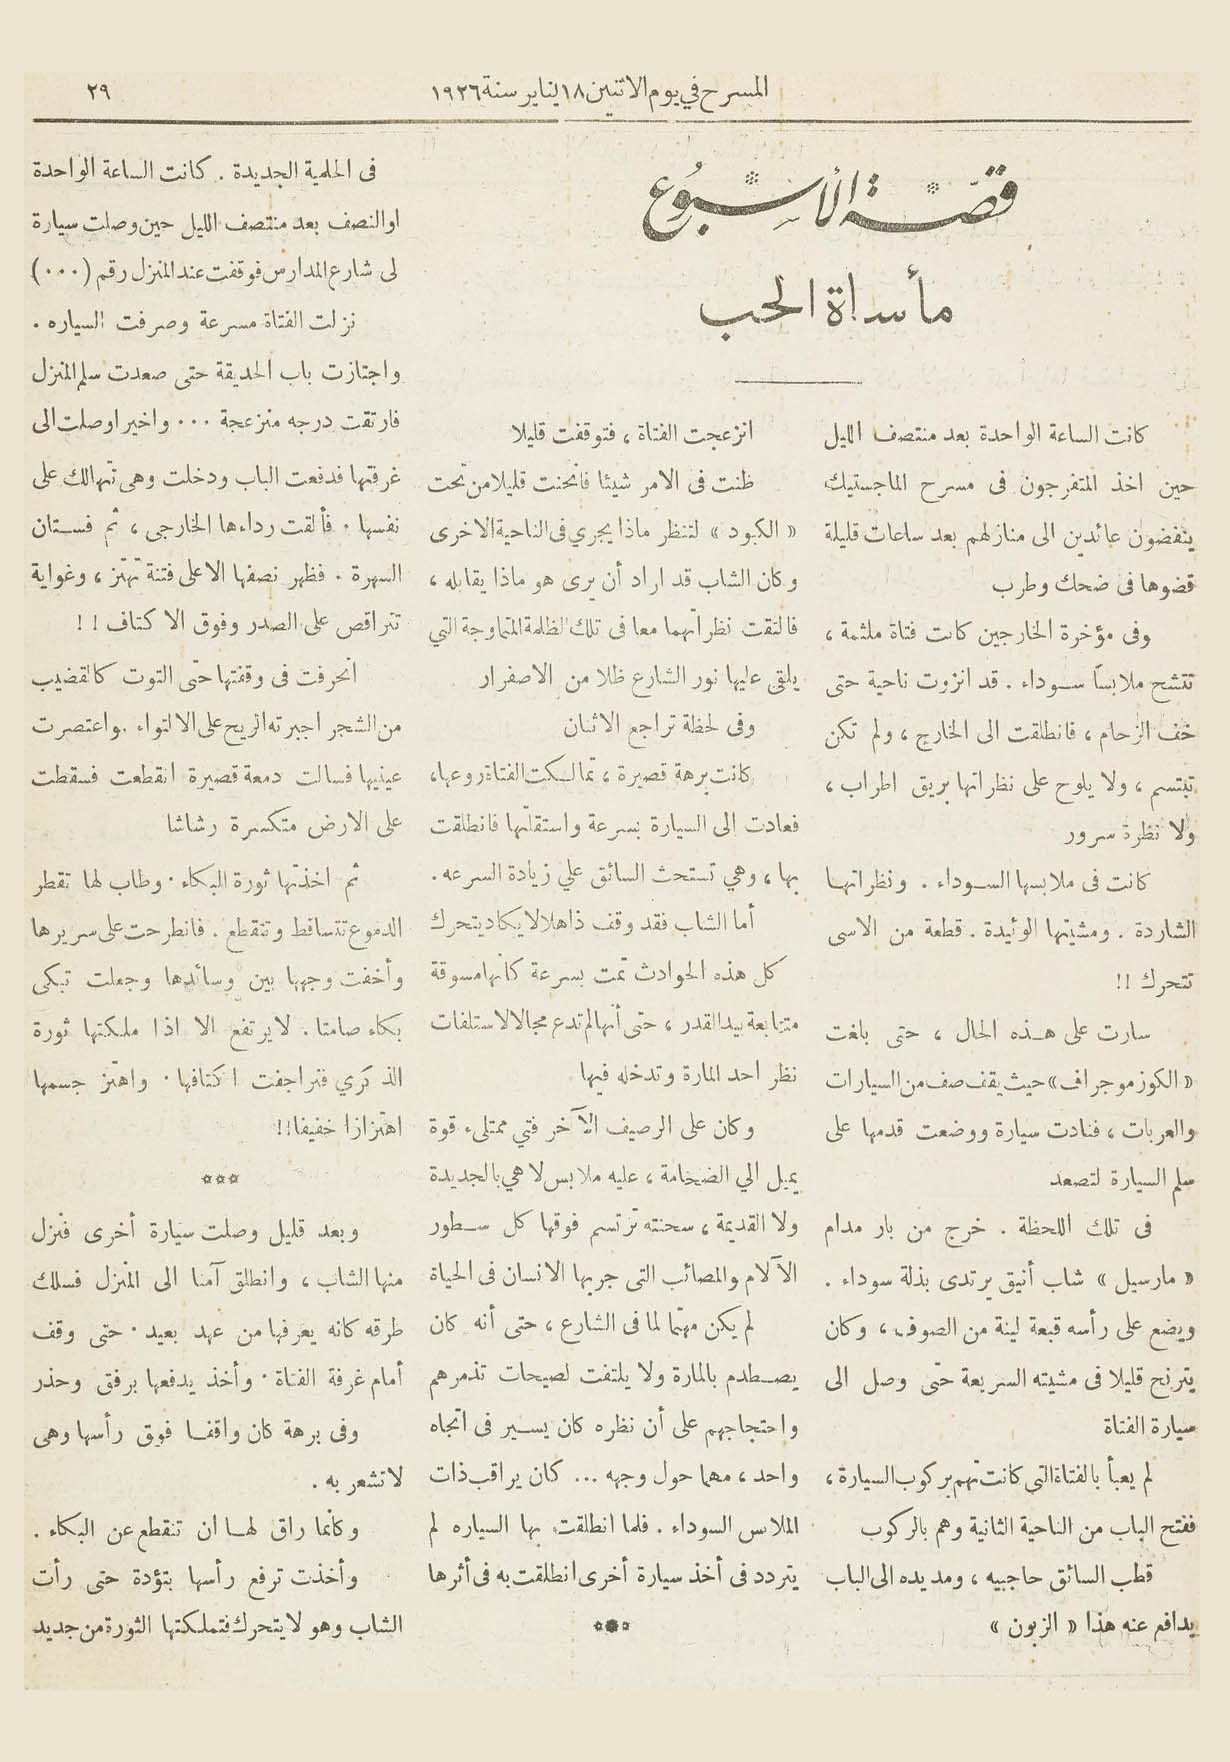 المسرح في يوم الاثنين ١٨ يناير سنة ١٩٢٦
٢٩
قصة الأسبوع
مأساة الحب
كانت الساعة الواحدة بعد منتصف الليل
حين اخذ المتفرجون فى مسرح الماجستيك
ينفضون عائدين الى منازلهم بعد ساعات قليلة
قضوها فى ضحك وطرب
وفى مؤخرة الخارجين كانت فتاة ملثمة ،
تتشح ملابساً سوداء . قد انزوت ناحية حتى
خف الزحام ، فانطلقت الى الخارج ، ولم تكن
تبتسم ، ولا يلوح على نظراتها بريق اطراب ،
ولا نظرة سرور
كانت فى ملابسها السوداء . ونظراتها
الشاردة . ومشيتها الوئيدة . قطعة من الاسى
تتحرك !!
سارت على هذه الحال ، حتى بلغت
« الكوزموجراف » حيث يقف صف من السيارات
والعربات ، فنادت سيارة ووضعت قدمها على
سلم السيارة لتصعد
فى تلك اللحظة . خرج من بار مدام
« مارسيل » شاب أنيق يرتدى بذلة سوداء .
ويضع على رأسه قبعة لينة من الصوف ، وكان
يترنح قليلا فى مشيته السريعة حتى وصل الى
سيارة الفتاة
لم يعبأ بالفتاة التى كانت تهم بركوب السيارة ،
ففتح الباب من الناحية الثانية وهم بالركوب
قطب السائق حاجبيه ، ومد يده الى الباب
يدافع عنه هذا « الزبون »
انزعجت الفتاة ، فتوقفت قليلا
ظنت فى الامر شيئا فانحنت قليلا من تحت
« الكبود » لتنظر ماذا يجري فى الناحية الاخرى
وكان الشاب قد اراد أن يرى هو ماذا يقابله ،
فالتقت نظراتهما معا فى تلك الظلمة المتماوجة التي
يلقى عليها نور الشارع ظلا من الاصفرار
وفى لحظة تراجع الاثنان
كانت برهة قصيرة ، تمالكت الفتاة روعها ،
فعادت الى السيارة بسرعة واستقلتها فانطلقت
بها ، وهي تستحث السائق علي زيادة السرعه .
أما الشاب فقد وقف ذاهلا لا يكاد يتحرك
كل هذه الحوادث تمت بسرعة كأنها مسوقة
متتابعة بيد القدر ، حتى أنها لم تدع مجالا لاستلفات
نظر احد المارة وتدخله فيها
وكان على الرصيف الآخر فتي ممتلىء قوة
يميل الي الضخامة ، عليه ملابس لا هي بالجديدة
ولا القديمة ، سحنته ترتسم فوقها كل سطور
الآلام والمصائب التى جربها الانسان فى الحياة
لم يكن مهتما لما فى الشارع ، حتى أنه كان
يصطدم بالمارة ولا يلتفت لصيحات تذمرهم
واحتجاجهم على أن نظره كان يسير فى اتجاه
واحد ، مهما حول وجهه ... كان يراقب ذات
الملابس السوداء . فلما انطلقت بها السياره لم
يتردد فى أخذ سيارة أخرى انطلقت به فى أثرها
***
فى الحلمية الجديدة . كانت الساعة الواحدة
او النصف بعد منتصف الليل حين وصلت سيارة
لى شارع المدارس فوقفت عند المنزل رقم (٠٠٠)
نزلت الفتاة مسرعة وصرفت السياره .
واجتازت باب الحديقة حتى صعدت سلم المنزل
فارتقت درجه منزعجة ... واخيرا وصلت الى
غرفتها فدفعت الباب ودخلت وهى تتهالك على
نفسها . فألقت رداءها الخارجى ، ثم فستان
السهرة . فظهر نصفها الاعلى فتنة تهتز ، وغواية
تتراقص على الصدر وفوق الاكتاف !!
انحرفت فى وقفتها حتى التوت كالقضيب
من الشجر اجبرته الريح على الالتواء . واعتصرت
عينيها فسالت دمعة قصيرة انقطعت فسقطت
على الارض متكسرة رشاشا
ثم اخذتها ثورة البكاء . وطاب لها تقطر
الدموع تتساقط وتتقطع . فانطرحت على سريرها
وأخفت وجهها بين وسائدها وجعلت تبكى
بكاء صامتا . لا يرتفع الا اذا ملكتها ثورة
الذكري فتراجفت اكتافها . واهتز جسمها
اهتزازا خفيفا !!
***
وبعد قليل وصلت سيارة أخرى فنزل
منها الشاب ، وانطلق آمنا الى المنزل فسلك
طرقه كانه يعرفها من عهد بعيد . حتى وقف
أمام غرفة الفتاة . وأخذ يدفعها برفق وحذر
وفى برهة كان واقفا فوق رأسها وهى
لا تشعر به .
وكأنما راق لها ان تنقطع عن البكاء .
وأخذت ترفع رأسها بتؤدة حتى رأت
الشاب وهو لا يتحرك فتملكتها الثورة من جديد